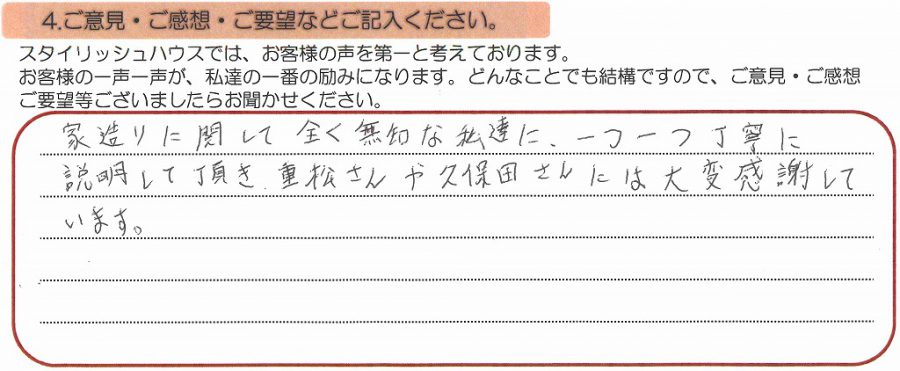 4.ご意見・ご感想・ご要望などご記入ください。
スタイリッシュハウスでは、お客様の声を第一と考えております。
お客様の一声一声が、私達の一番の励みになります。どんなことでも結構ですので、ご意見・ご感想
ご要望等ございましたらお聞かせください。
家造りに関して全く無知な私達に、一つ一つ丁寧に
説明して頂き、重松さんや久保田さんには大変感謝して
います。